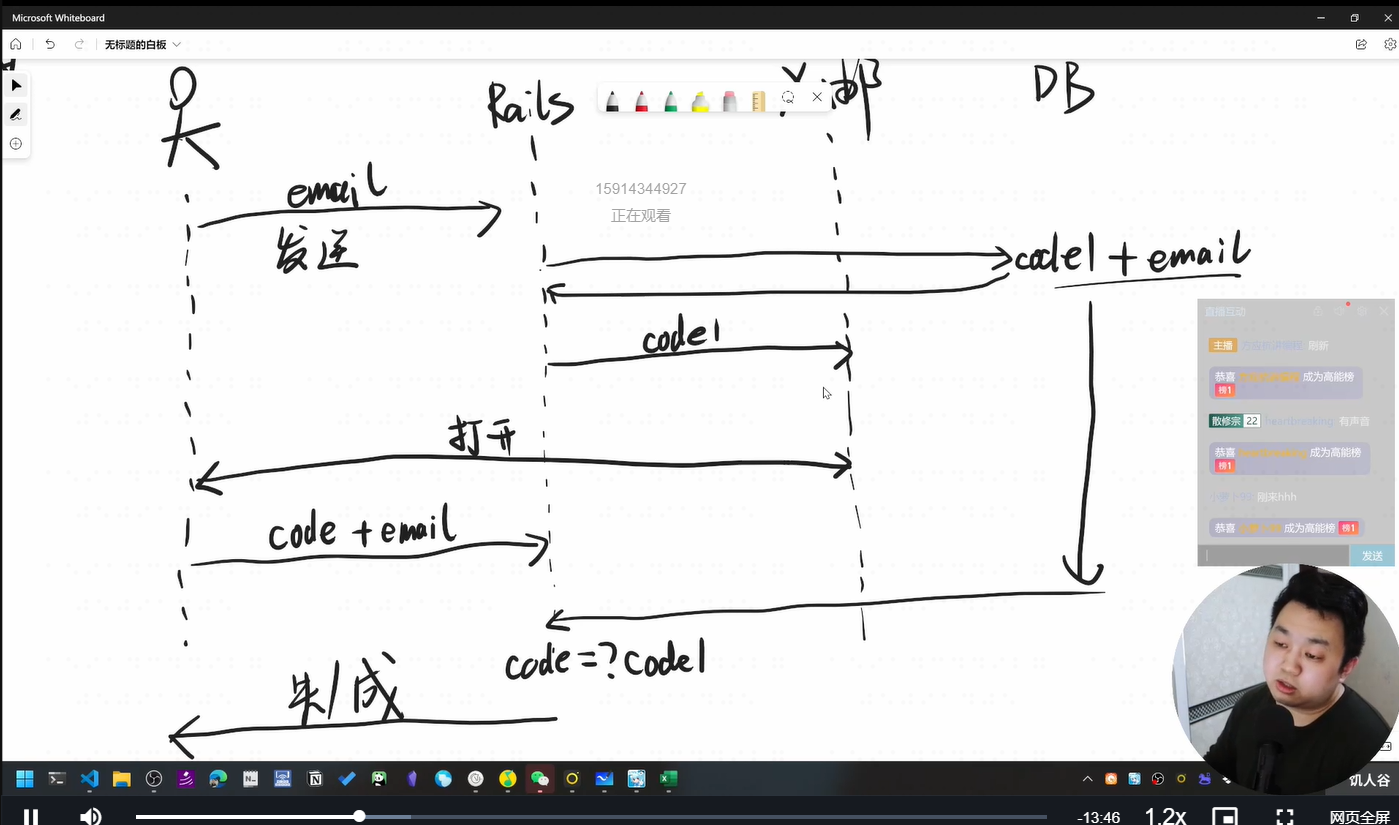 Microsoft Whiteboard
无标题的白板
Rails
DB
15914344927
正在观看
email
发送
code1 + email
code1
打开
code + email
code=?code1
失/成
直播互动
主播
恭喜
成为高能榜
榜1
散修宗 22 heartbreaking 有声音
恭喜
成为高能榜
榜1
刚来hhh
恭喜
成为高能榜 榜1
发送
饥人谷
-13:46
1.2x
网页全屏